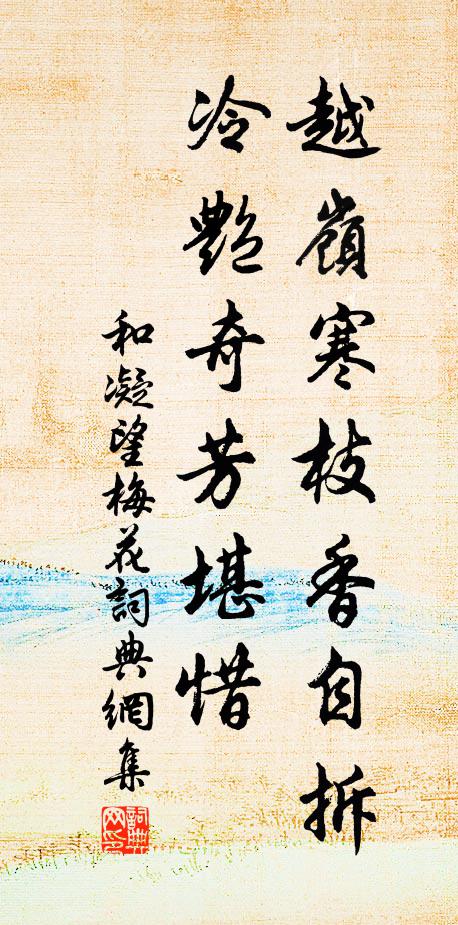 越嶺寒枝香自拆
冷艷奇芳堪惜
和凝望梅花詞典網集
詞典網印